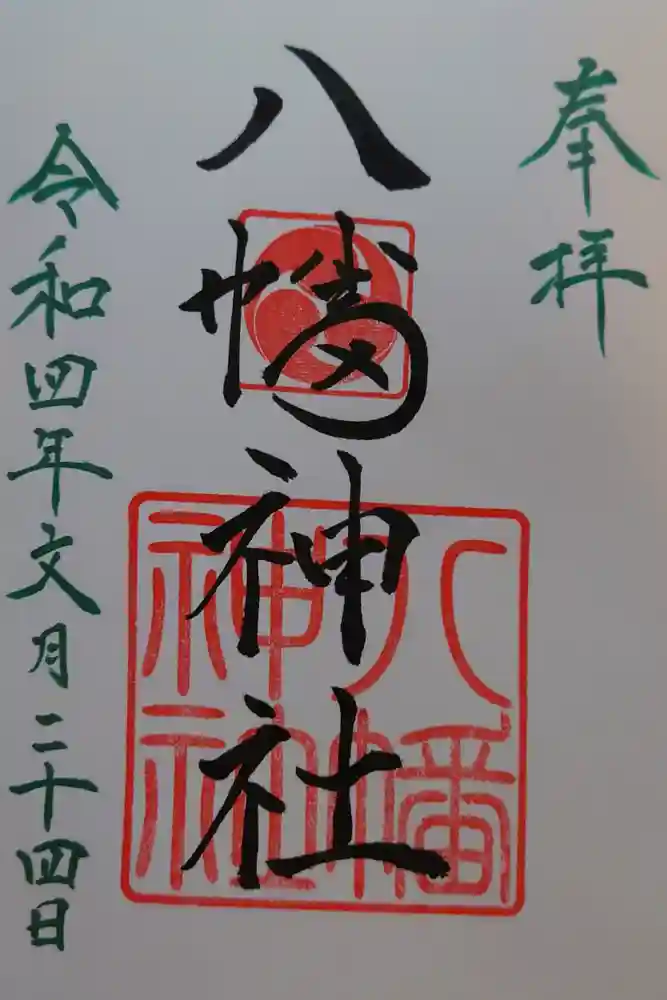 奉拝
八幡神社
八幡
神社
令和四年文月二十四日